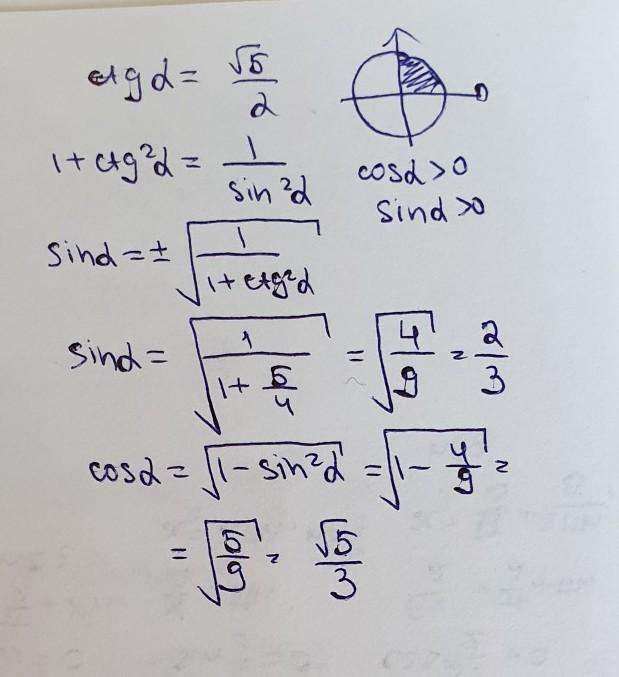 ctg α = √5/2
1 + ctg²α = 1/sin²α
cosα > 0
sinα > 0
sinα = ± √(1/(1 + ctg²α))
sinα = √(1/(1 + 5/4)) = √(4/9) = 2/3
cosα = √(1 − sin²α) = √(1 − 4/9) =
= √(5/9) = √5/3